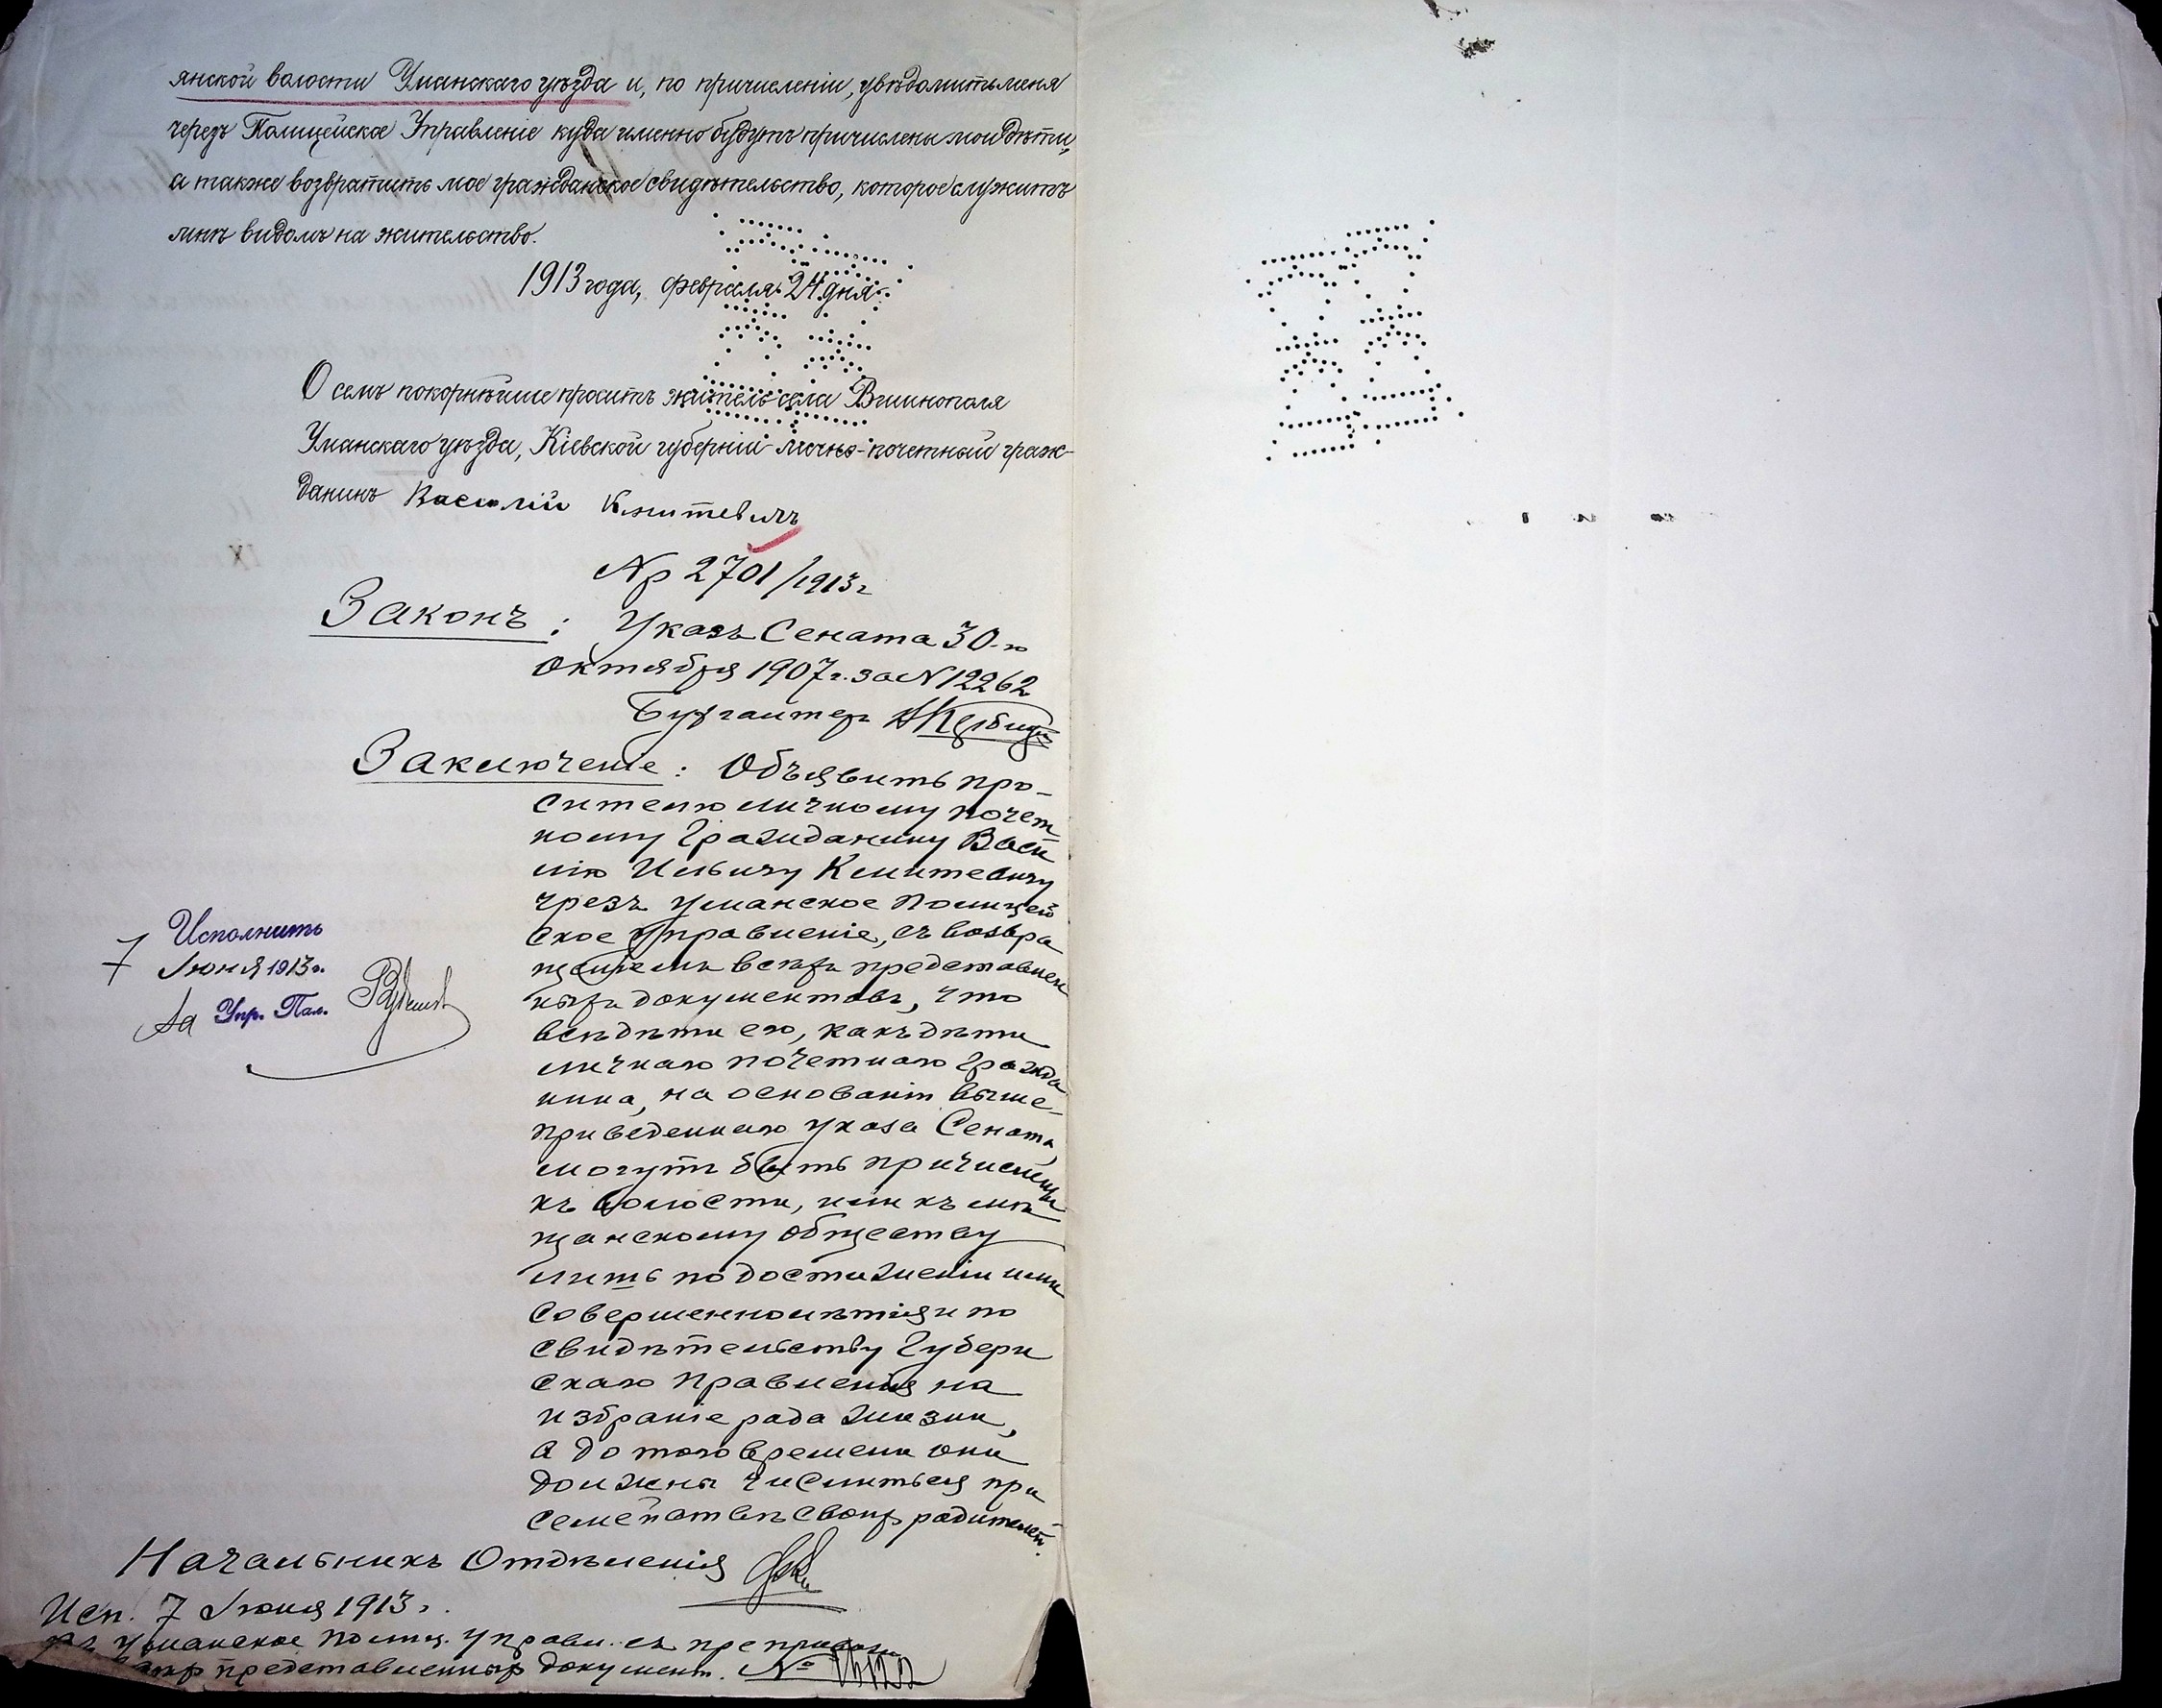 янской волости Уманскаго уѣзда и, по причисленіи, увѣдомить меня
черезъ Полицейское Управленіе куда именно будутъ причислены мои дѣти,
а также возвратить мое гражданское свидѣтельство, которое служитъ
мнѣ видомъ на жительство.
1913 года, февраля 24 дня.
О семъ покорнѣйше проситъ житель села Вшинополя
Уманскаго уѣзда, Кіевской губерніи лично-почетный граж-
данинъ Василій Клитевичъ
№ 2701/1913 г
Законъ: Указъ Сената 30-го
октября 1907 г. за № 12262
Бухгалтеръ
Заключеніе: Объявить про-
сителю личному почет
ному гражданину Васи
лію Ильичу Клитевичу
чрезъ Уманское Полицей
ское Управленіе, съ возвра
щеніемъ всѣхъ представлен
ныхъ документовъ, что
всѣ дѣти его, какъ дѣти
личнаго почетнаго гражда
нина, на основаніи выше-
приведеннаго указа Сената,
могутъ быть причислены
къ волости, или къ мѣ
щанскому обществу
лишь по достиженіи ими
совершеннолѣтія и по
свидѣтельству Губерн
скаго Правленія на
избраніе рода жизни,
а до того времени они
должны числиться при
семействѣ своихъ родителей.
Исполнить
7 Іюня 1913 г.
За Упр. Пал.
Начальникъ Отдѣленія
Исп. 7 Іюня 1913 г.
въ Уманское Полиц. Управл. съ препровож
представленныхъ документ. №